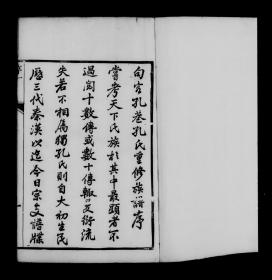 句容孔巷孔氏重修族譜序
嘗考天下氏族於其中最顯者不
過閲十數傳或數十傳輒已衍流
失若不相屬獨孔氏則自大初生民
歷三代秦漢以迄今日宗支譜牒